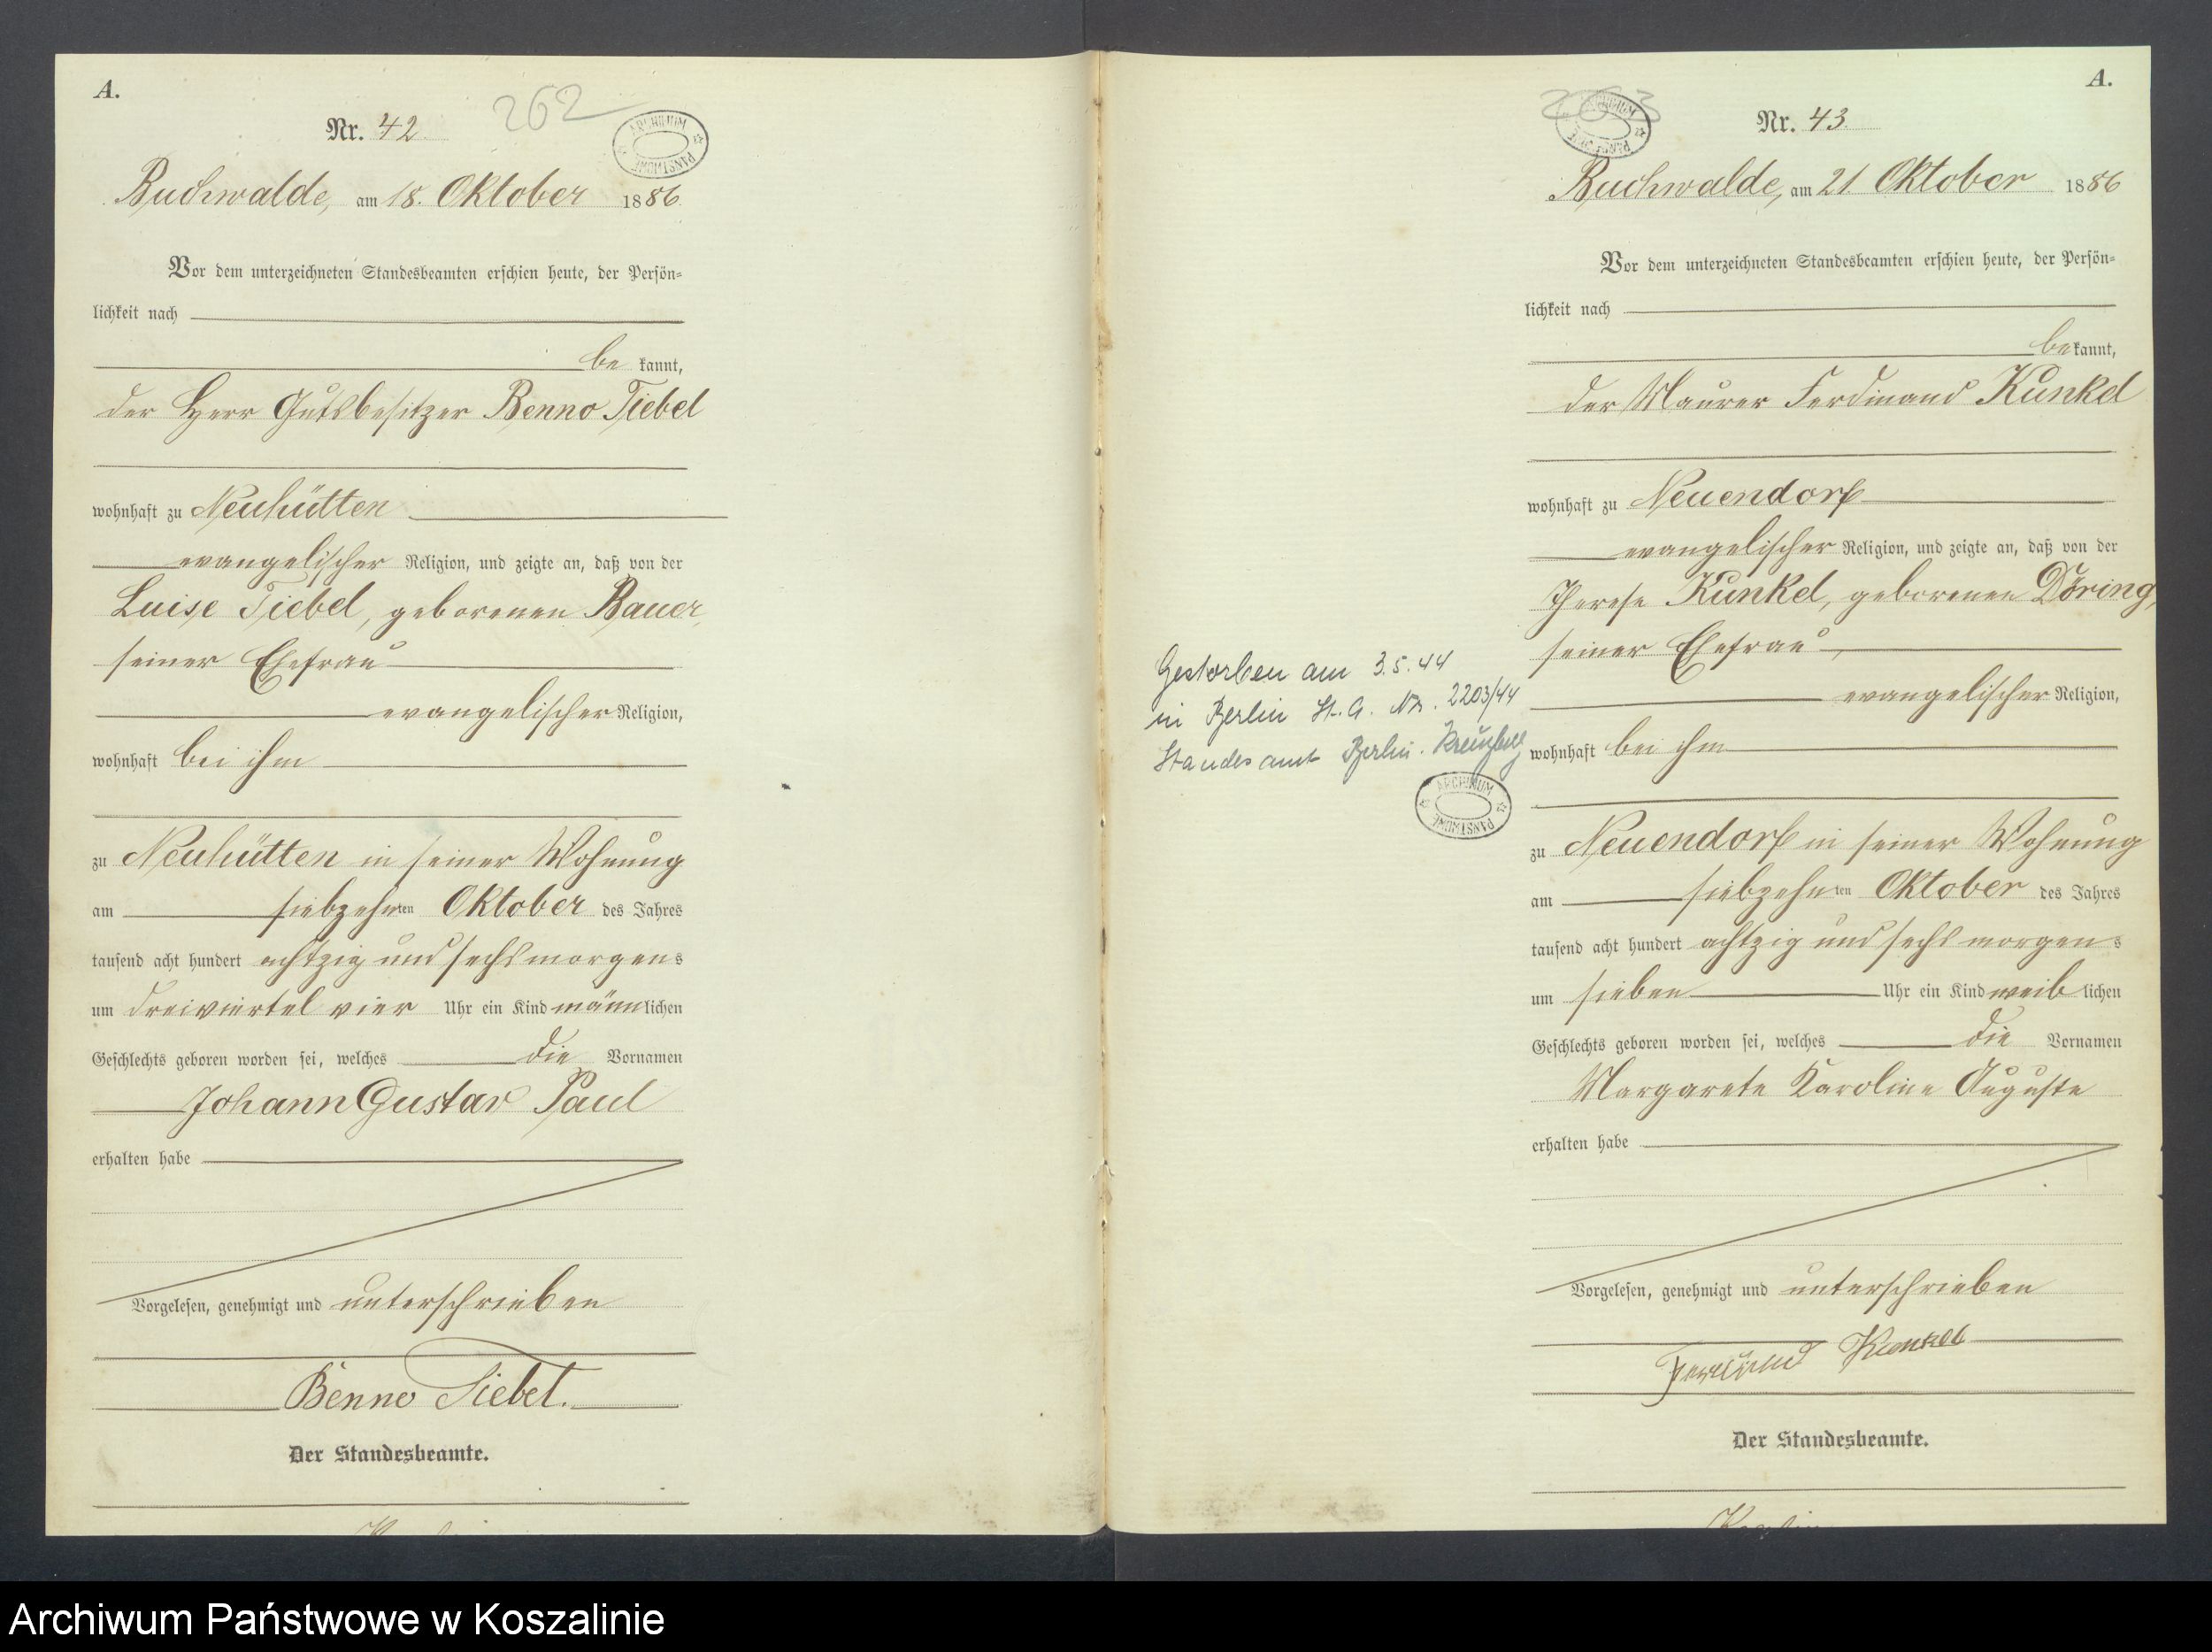 A.
Nr. 42.
262
ARCHIWUM PAŃSTWOWE
Buchwalde, am 18. Oktober 1886
Vor dem unterzeichneten Standesbeamten erschien heute, der Persön=
lichkeit nach
be kannt,
der Herr Gutsbesitzer Benno Tiebel
wohnhaft zu Neuhütten
evangelischer Religion, und zeigte an, daß von der
Luise Tiebel, geborenen Bauer,
seiner Ehefrau
evangelischer Religion,
wohnhaft bei ihm
zu Neuhütten in seiner Wohnung
am siebzehnten Oktober des Jahres
tausend acht hundert achtzig und sechs morgens
um dreiviertel vier Uhr ein Kind männlichen
Geschlechts geboren worden sei, welches die Vornamen
Johann Gustav Paul
erhalten habe
Vorgelesen, genehmigt und unterschrieben
Benno Tiebel.
Der Standesbeamte.
A.
263
ARCHIWUM PAŃSTWOWE
Nr. 43
Buchwalde, am 21. Oktober 1886
Vor dem unterzeichneten Standesbeamten erschien heute, der Persön=
lichkeit nach
bekannt,
der Maurer Ferdinand Kunkel
wohnhaft zu Neuendorf
evangelischer Religion, und zeigte an, daß von der
Therese Kunkel, geborenen Döring,
seiner Ehefrau,
evangelischer Religion,
wohnhaft bei ihm
zu Neuendorf in seiner Wohnung
am siebzehnten Oktober des Jahres
tausend acht hundert achtzig und sechs morgens
um sieben Uhr ein Kind weiblichen
Geschlechts geboren worden sei, welches die Vornamen
Margarete Karoline Auguste
erhalten habe
Vorgelesen, genehmigt und unterschrieben
Ferdinand Kunkel
Der Standesbeamte.
Gestorben am 3.5.44
in Berlin St. A. Nr. 2203/44
Standesamt Berlin-Kreuzberg
ARCHIWUM PAŃSTWOWE
Archiwum Państwowe w Koszalinie